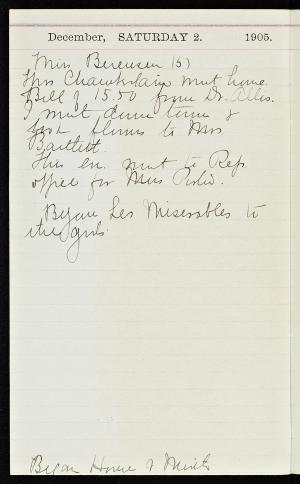 December, SATURDAY 2. 1905.
Miss Berenson (5)
Mrs Chamberlain went home.
Bill of 15.50 from Dr. Allis.
I went down town &
took flowers to Mrs
Bartlett.
This ev. went to Rep.
office for Mrs
Began Les Miserables to
the girls.
Began House of Mirth